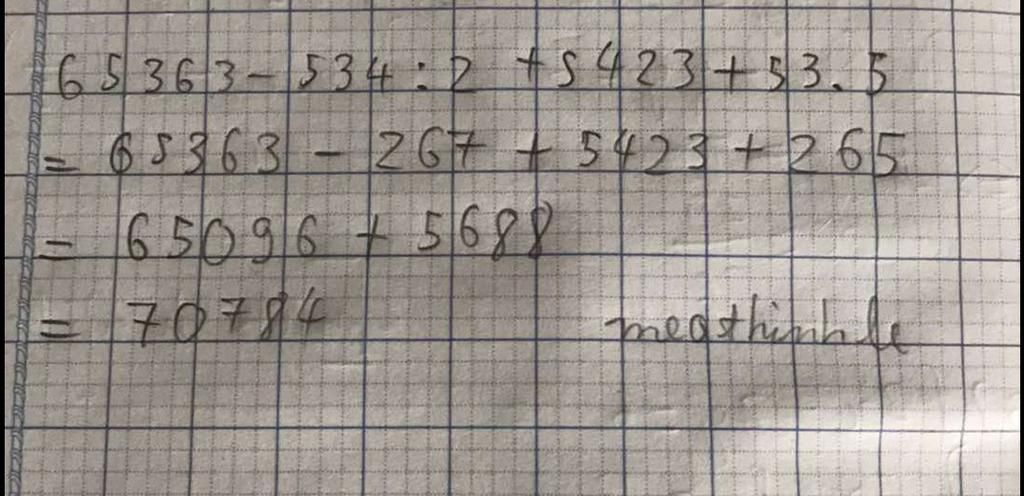 65363 - 534 : 2 + 5423 + 53 . 5
= 65363 - 267 + 5423 + 265
= 65096 + 5688
= 70784